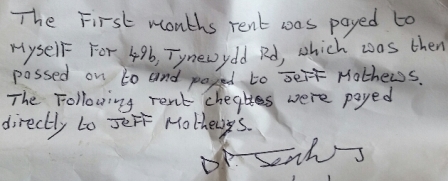 The First months rent was payed to
myself For 49b, Tynewydd Rd, which was then
passed on to and payed to JeFF Mathews.
The Following rent cheques were payed
directly to JeFF Mathews.